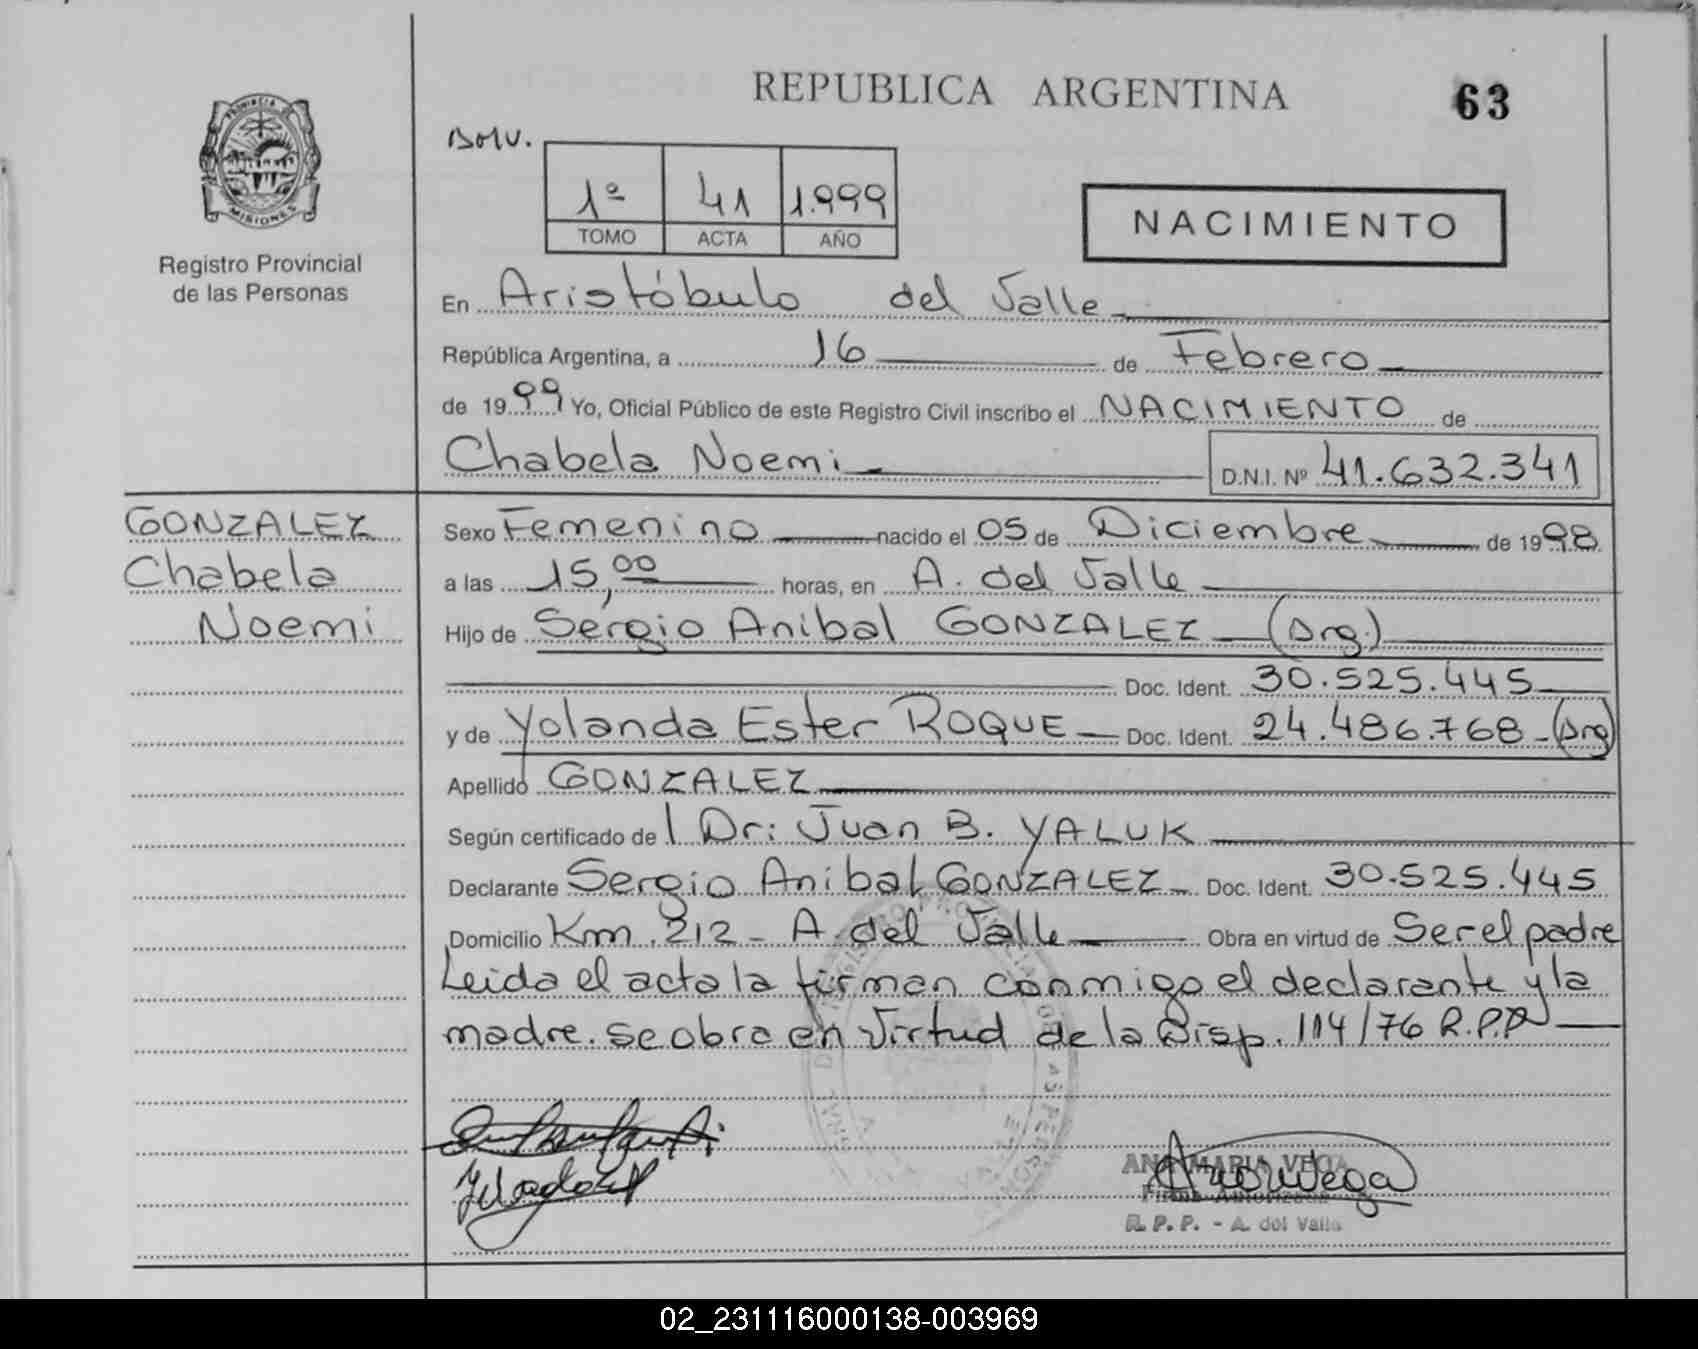 REPUBLICA ARGENTINA
63
PROVINCIA DE
MISIONES
Registro Provincial
de las Personas
1º 41 1.999
TOMO ACTA AÑO
NACIMIENTO
En Aristóbulo del Valle
República Argentina, a 16 de Febrero
de 1999 Yo, Oficial Público de este Registro Civil inscribo el NACIMIENTO de
Chabela Noemi D.N.I. Nº 41.632.341
GONZALEZ
Chabela
Noemi
Sexo Femenino nacido el 05 de Diciembre de 1998
a las 15,00 horas, en A. del Valle
Hijo de Sergio Anibal GONZALEZ (Arg.)
Doc. Ident. 30.525.445
y de Yolanda Ester ROQUE Doc. Ident. 24.486.768 - (Arg)
Apellido GONZALEZ
Según certificado de l Dr: Juan B. YALUK
Declarante Sergio Anibal GONZALEZ Doc. Ident. 30.525.445
Domicilio Km. 212 - A. del Valle Obra en virtud de Ser el padre
Leida el acta la firman conmigo el declarante y la
madre. se obra en Virtud de la Disp. 114/76 R.P.P
ANA MARIA VEGA
Firma Autorizada
R. P. P. - A. del Valle
02_231116000138-003969